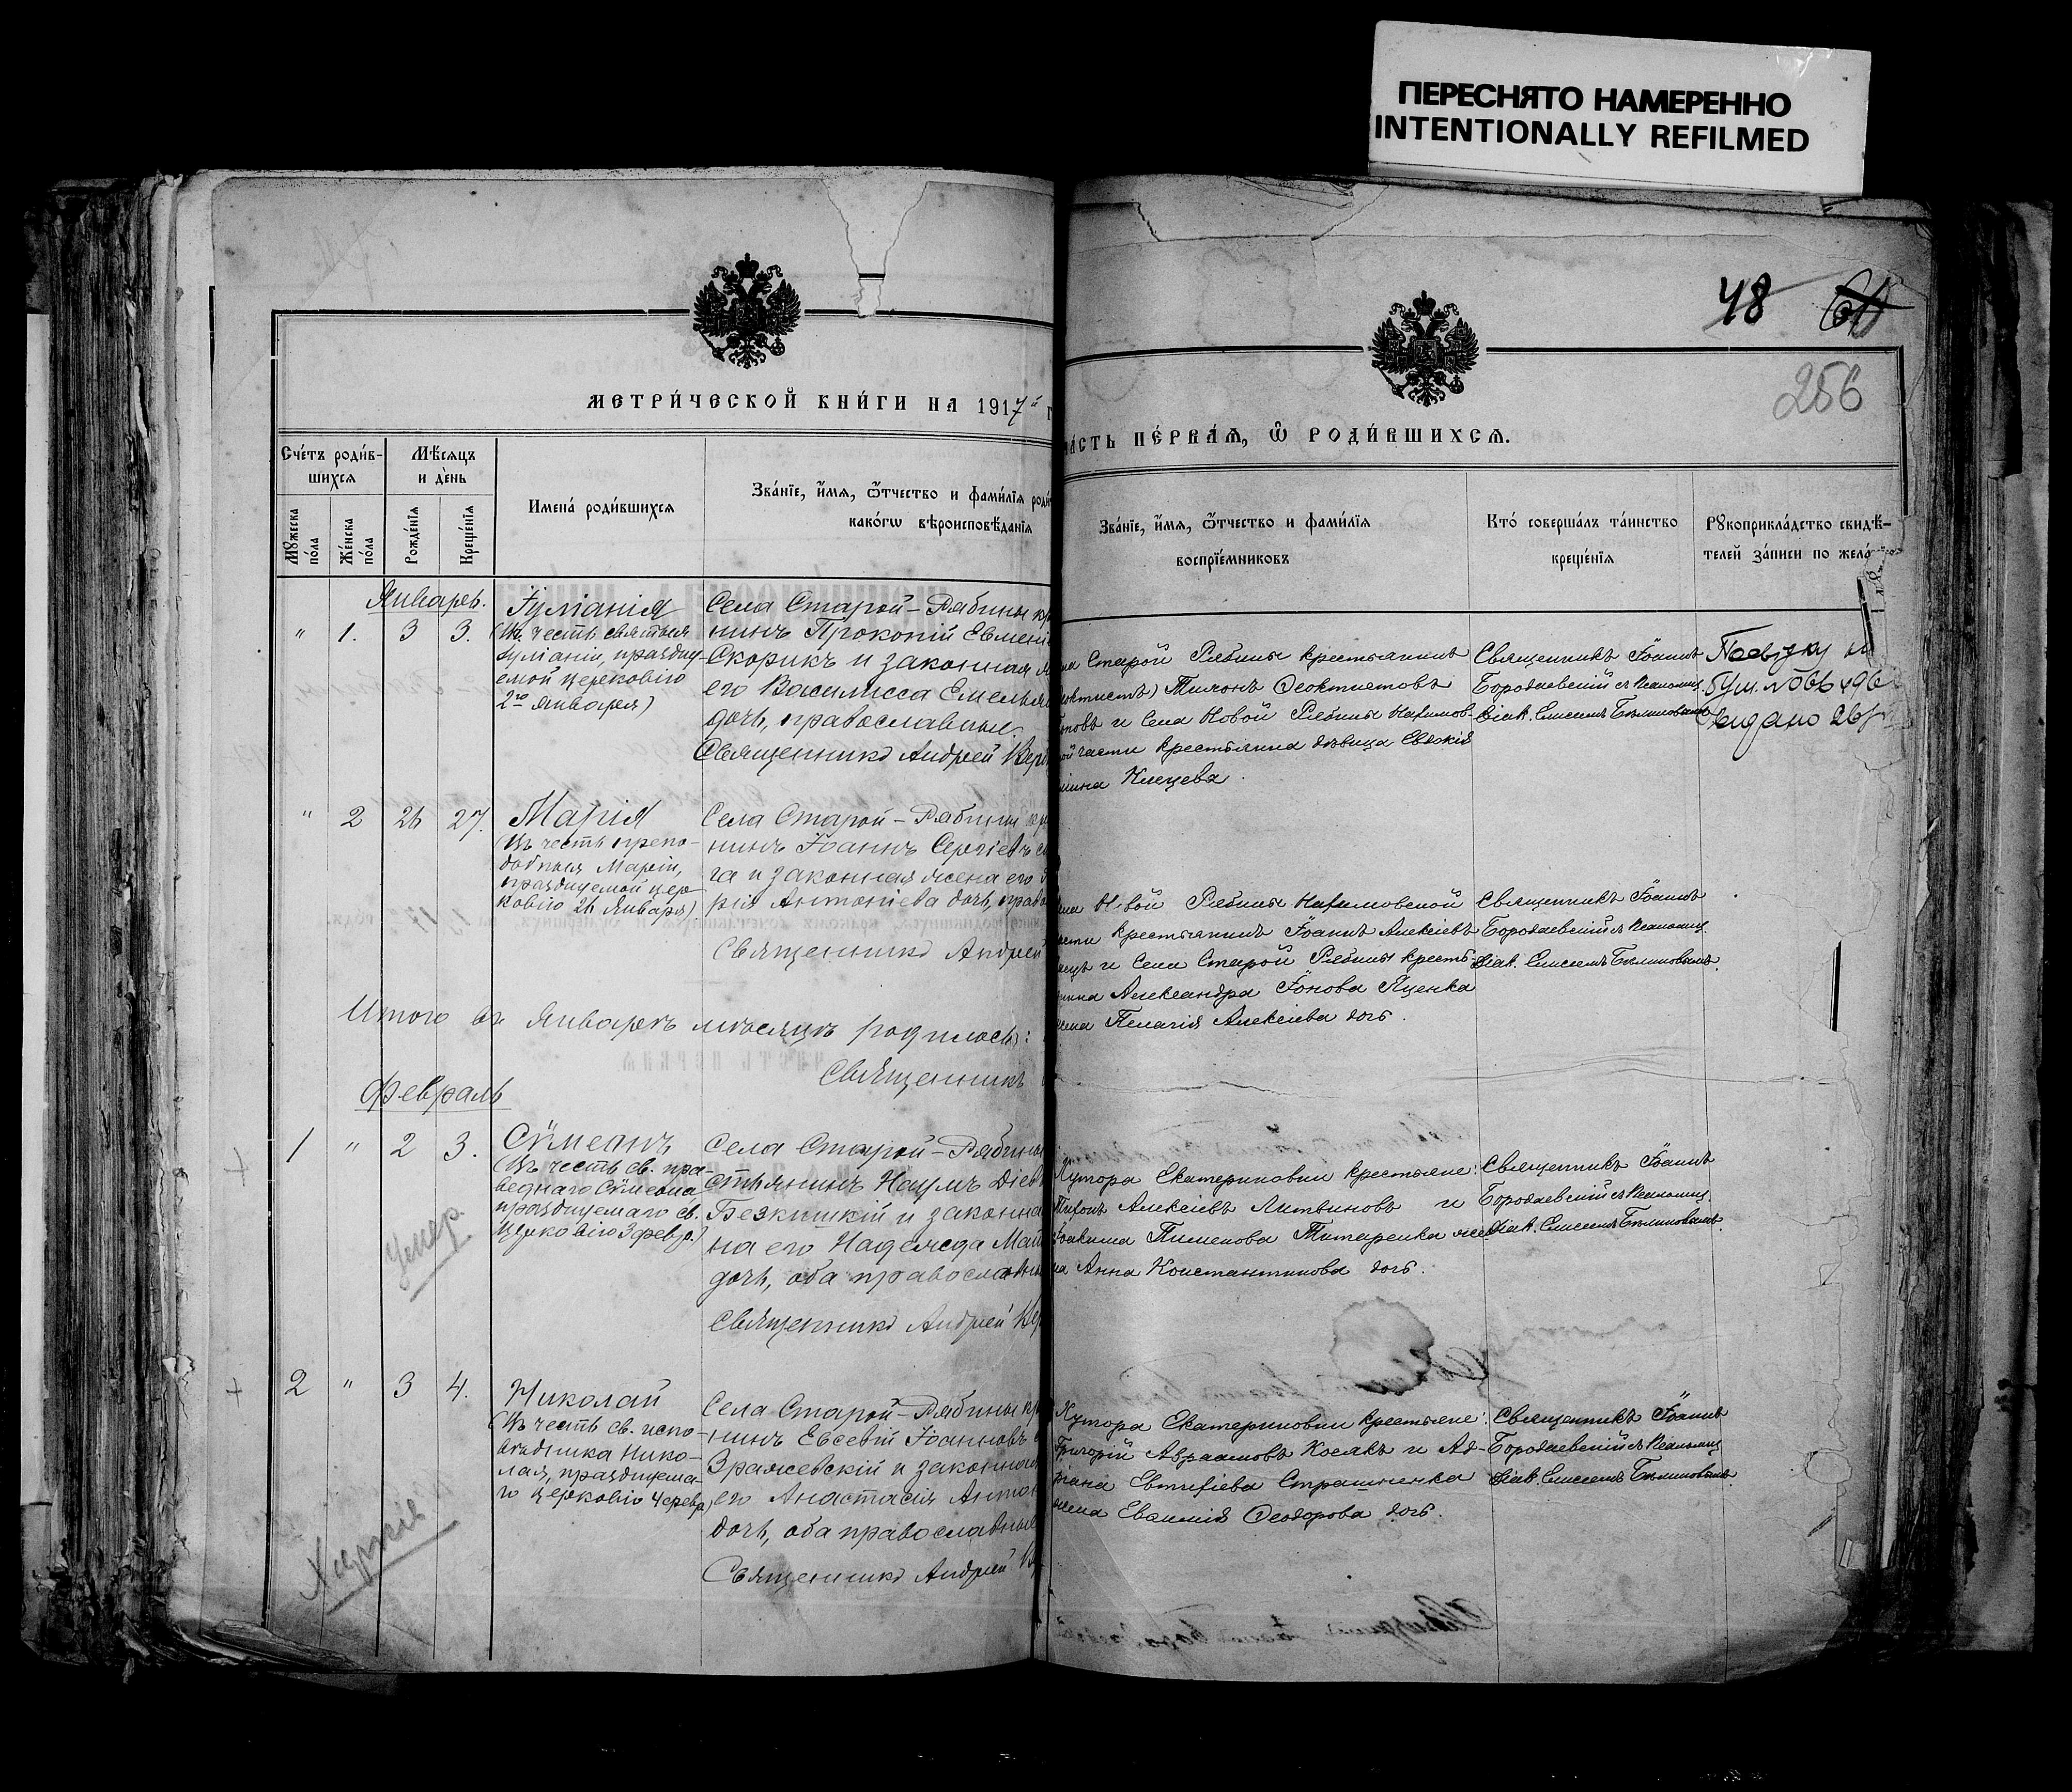 ПЕРЕСНЯТО НАМЕРЕННО
INTENTIONALLY REFILMED
48
256
МЕТРИ́ЧЕСКОЙ КНИ́ГИ НА 1917й
ЧА́СТЬ ПЕ́РВАѦ, Ѿ РОДИ́ВШИХСѦ.
Сче́тъ роди́в-
шихсѧ
Мꙋ́жеска
по́ла
Же́нска
по́ла
Мѣ́сѧцъ
и де́нь
Рожде́нїѧ
Креще́нїѧ
Имена́ роди́вшихсѧ
Зва́нїе, и́мѧ, ѿ́тчество и фами́лїѧ роди
како́гѡ вѣроисповѣ́данїѧ
Зва́нїе, и́мѧ, ѿ́тчество и фами́лїѧ
воспрїе́мниковъ
Кто́ соверша́лъ та́инство
креще́нїѧ
Рꙋкоприкла́дство свидѣ́-
телей за́писи по жела́
Январь.
" 1. 3 3.
Іуліанія
(Въ честь святыя
Іуліаніи, праздну-
емой церковію
2го Января)
Села Старой-Рябины кр
нинъ Прокопій Евмені
Скорикъ и законная ж
его Василисса Емелья
дочь, православные
Священникъ Андрей
на Старой Рябины крестьянинъ
Тихонъ Ѳеоктистовъ
и села Новой Рябины Нахимов-
ой части крестьянина дѣвица Евдокія
Клецева.
Священникъ Іоаннъ
Бородаевскій съ псаломщ.
діак. Елисеемъ Билиновымъ
Выдано
" 2 26 27.
Марія
(Въ честь препо-
добныя Маріи,
празднуемой цер-
ковію 26 Января)
Села Старой-Рябины кр
нинъ Іоаннъ Сергіевъ
га и законная жена его
рія Антоніева дочь, право
Священникъ Андрей
Новой Рябины Нахимовской
части крестьянинъ Іоаннъ Алексіевъ
и села Старой Рябины кресть-
янина Александра Іонова Яценка
жена Пелагія Алексіева дочь.
Священникъ Іоаннъ
Бородаевскій съ псаломщ.
діак. Елисеемъ Билиновымъ.
Итого въ Январѣ мѣсяцѣ родилось:
Священникъ
Февраль
1 " 2 3.
Сѵмеонъ
(Въ честь св. пра-
веднаго Сѵмеона
празднуемаго св.
церковію 3 февр.)
умер.
Села Старой-Рябины
стьянинъ Наумъ Діев
Безкишкій и законна
на его Надежда Мат
дочь, оба православны
Священникъ Андрей
Хутора Екатериновки крестьяне:
Тихонъ Алексіевъ Литвиновъ и
Іоакима Пименова Титаренка же-
на Анна Константинова дочь.
Священникъ Іоаннъ
Бородаевскій съ псаломщ.
діак. Елисеемъ Билиновымъ.
2 " 3 4.
Николай
(Въ честь св. испо-
вѣдника Нико-
лая, празднуема-
го церковію 4 февр.)
Села Старой-Рябины кр
нинъ Евсевій Іоанновъ
Зражевскій и законная
его Анастасія Антон
дочь, оба православные
Священникъ Андрей
Хутора Екатериновки крестьяне:
Григорій Авраамовъ Косякъ и Ад-
ріана Евтифіева Страшненка
жена Евфимія Ѳеодорова дочь.
Священникъ Іоаннъ
Бородаевскій съ псаломщ.
діак. Елисеемъ Билиновымъ.